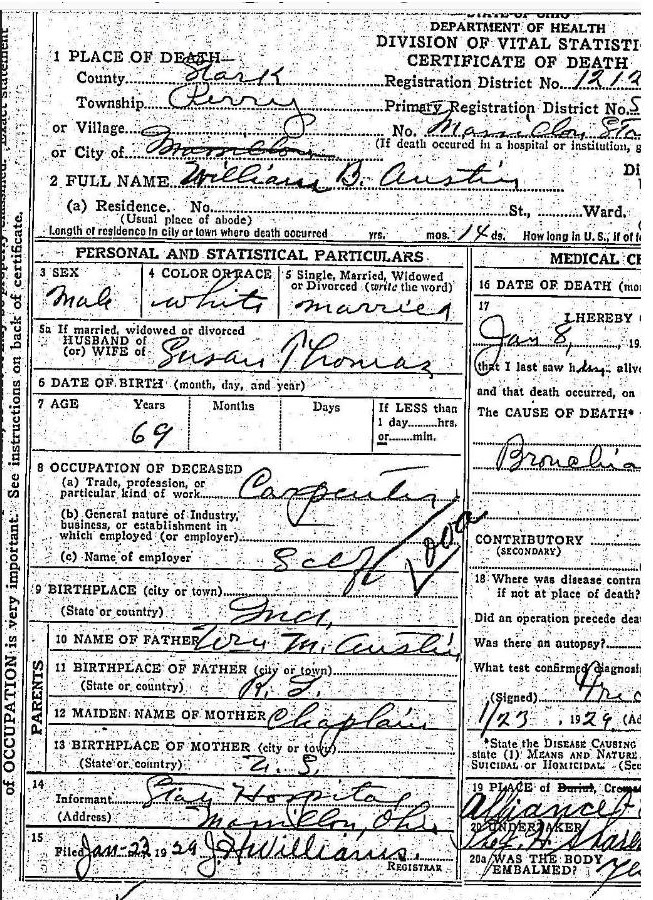 STATE OF OHIO
DEPARTMENT OF HEALTH
DIVISION OF VITAL STATISTI
CERTIFICATE OF DEATH
1 PLACE OF DEATH
County Stark
Registration District No. 1212
Township Perry
Primary Registration District No. 5
or Village
No. Massillon Sta
or City of Massillon
(If death occured in a hospital or institution, g
2 FULL NAME William B. Austin
Di
(a) Residence. No. St., Ward.
(Usual place of abode)
Length of residence in city or town where death occurred yrs. mos. 14 ds. How long in U.S., if of f
PERSONAL AND STATISTICAL PARTICULARS
3 SEX
Male
4 COLOR OR RACE
White
5 Single, Married, Widowed
or Divorced (write the word)
married
5a If married, widowed or divorced
HUSBAND of
(or) WIFE of Susan Thomas
6 DATE OF BIRTH (month, day, and year)
7 AGE Years Months Days If LESS than
1 day hrs.
or min.
69
8 OCCUPATION OF DECEASED
(a) Trade, profession, or
particular kind of work Carpenter
(b) General nature of Industry,
business, or establishment in
which employed (or employer)
(c) Name of employer Self
9 BIRTHPLACE (city or town)
(State or country) Ind.
PARENTS
10 NAME OF FATHER M. Austin
11 BIRTHPLACE OF FATHER (city or town)
(State or country) R. I.
12 MAIDEN NAME OF MOTHER Chaplain
13 BIRTHPLACE OF MOTHER (city or town)
(State or country) U. S.
14
Informant State Hospital
(Address) Massillon, Ohio
15
Filed Jan-23 1929 J H Williams.
REGISTRAR
MEDICAL CE
16 DATE OF DEATH (mo
17
I HEREBY
Jan 8, 19
that I last saw him alive
and that death occurred, on
The CAUSE OF DEATH*
Bronchia
CONTRIBUTORY
(SECONDARY)
18 Where was disease contra
if not at place of death?
Did an operation precede dea
Was there an autopsy?
What test confirmed diagnosi
(Signed)
1/23, 1929 (Ad
*State the DISEASE CAUSING
state (1) MEANS AND NATURE
SUICIDAL or HOMICIDAL. (Sec
19 PLACE of Burial, Crema
Alliance
20 UNDERTAKER
20a WAS THE BODY
EMBALMED? Yes
of OCCUPATION is very important. See instructions on back of certificate.